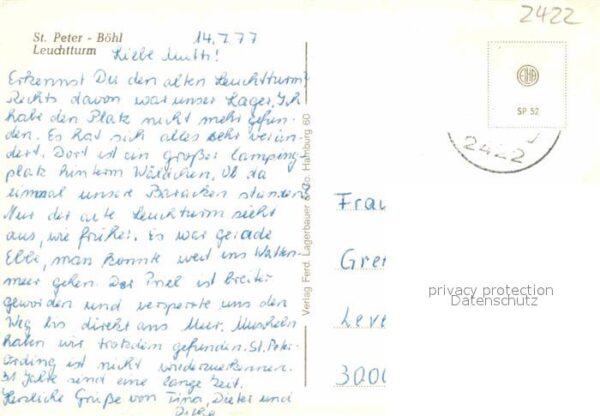 2422
St. Peter - Böhl
Leuchtturm
14.7.77
Liebe Mutti!
Erkennst Du den alten Leuchtturm?
Rechts davon war unser Lager. Ich
habe den Platz nicht mehr gefun-
den. Es hat sich alles sehr verän-
dert. Dort ist ein großer Camping-
platz hinterm Wäldchen. Ob da
einmal unsere Baracken standen?
Nur der alte Leuchtturm sieht
aus, wie früher. Es war gerade
Ebbe, man konnte weit ins Watten-
meer gehen. Der Priel ist breiter
geworden und versperrte uns den
Weg bis direkt ans Meer. Muscheln
haben wir trotzdem gefunden. St. Peter-
Ording ist nicht wiederzuerkennen.
31 Jahre sind eine lange Zeit.
Herzliche Grüße von Tina, Dieter und
Verlag Ferd. Lagerbauer & Co. Hamburg 60
SP 52
2422
Frau
Gre
Leve
3000
privacy protection
Datenschutz